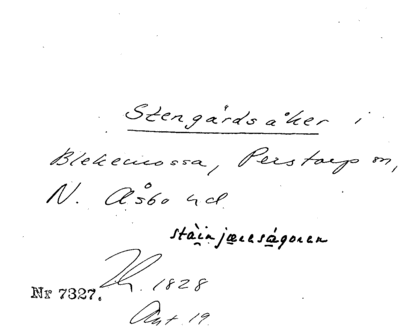 Stengårdsåker i
Blekemossa, Perstorp sn,
N. Åsbo hd
stàinjæresågoren
1828
Nr 7327.
Ant. 19